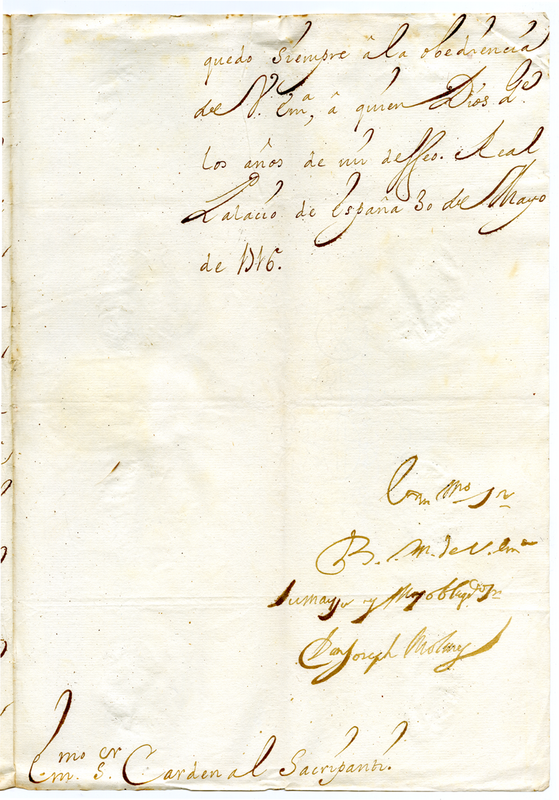 quedo siempre â la obediencia
de V. Em.ª, â quien Dios g.de
los años de mi desseo. Real
Palacio de España 30 de Mayo
de 1716.
Em.mo S.r
B. M. de V. Em.ª
su mayor y Mas oblig.do S.r
Don Joseph Molines
Em.mo S.or Cardenal Sacripanti.